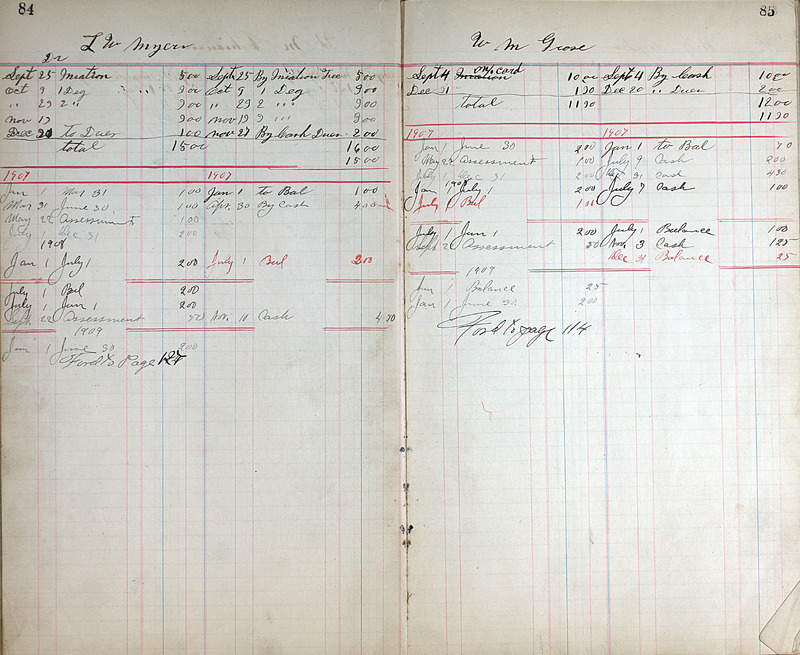 84
L W Myers
Dr
Sept 25 Iniation 500 Sept 25 By Iniation Fee 500
Oct 9 1 Deg " " 300 Oct 9 1 Deg 300
" 23 2 " 300 " 23 2 " " " 300
Nov 13 300 Nov 13 3 " " " 300
Dec 30 to Dues 100 Nov 27 By Cash Dues 200
total 1500 1600
1500
1907 1907
Jan 1 Mar 31 100 Jan 1 to Bal 100
Mar 31 June 30 100 Apr. 30 By Cash 400
May 22 Assessment 100
July 1 Dec 31 200
1908
Jan 1 July 1 200 July 1 Bal 200
July 1 Bal 200
July 1 Jan 1 200
Sept 22 Assessment 50 Nov. 10 Cash 450
1909
Jan 1 June 30 200
Ford to Page 127
85
W M Grose
Sept 4 on card 1000 Sept 4 By Cash 1000
Dec 31 130 Dec 20 " Dues 200
total 1130 1200
1130
1907 1907
Jan 1 June 30 200 Jan 1 to Bal 70
May 22 Assessment 100 July 9 Cash 200
July 1 Dec 31 200 Dec 31 Cash 430
1908
Jan 1 July 1 200 July 7 Cash 100
July 1 Bal 100
July 1 Jan 1 200 July 1 Balance 100
Sept 22 Assessment 50 Nov. 3 Cash 125
Dec 31 Balance 25
1909
Jan 1 Balance 25
Jan 1 June 30 200
Ford to page 114